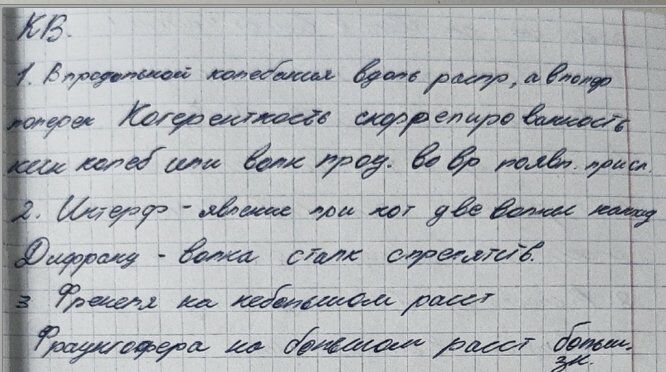 КВ.
1. В продольной колебания вдоль распр, а в попер
поперек Когерентность скоррелированность
колеб или волн проц. во вр появл.
2. Интерф - явление при кот две волны наклад
Дифракц - волна сталк с препятств.
3 Френеля на небольшом расст
Фраунгофера на большом расст больш.
зн.